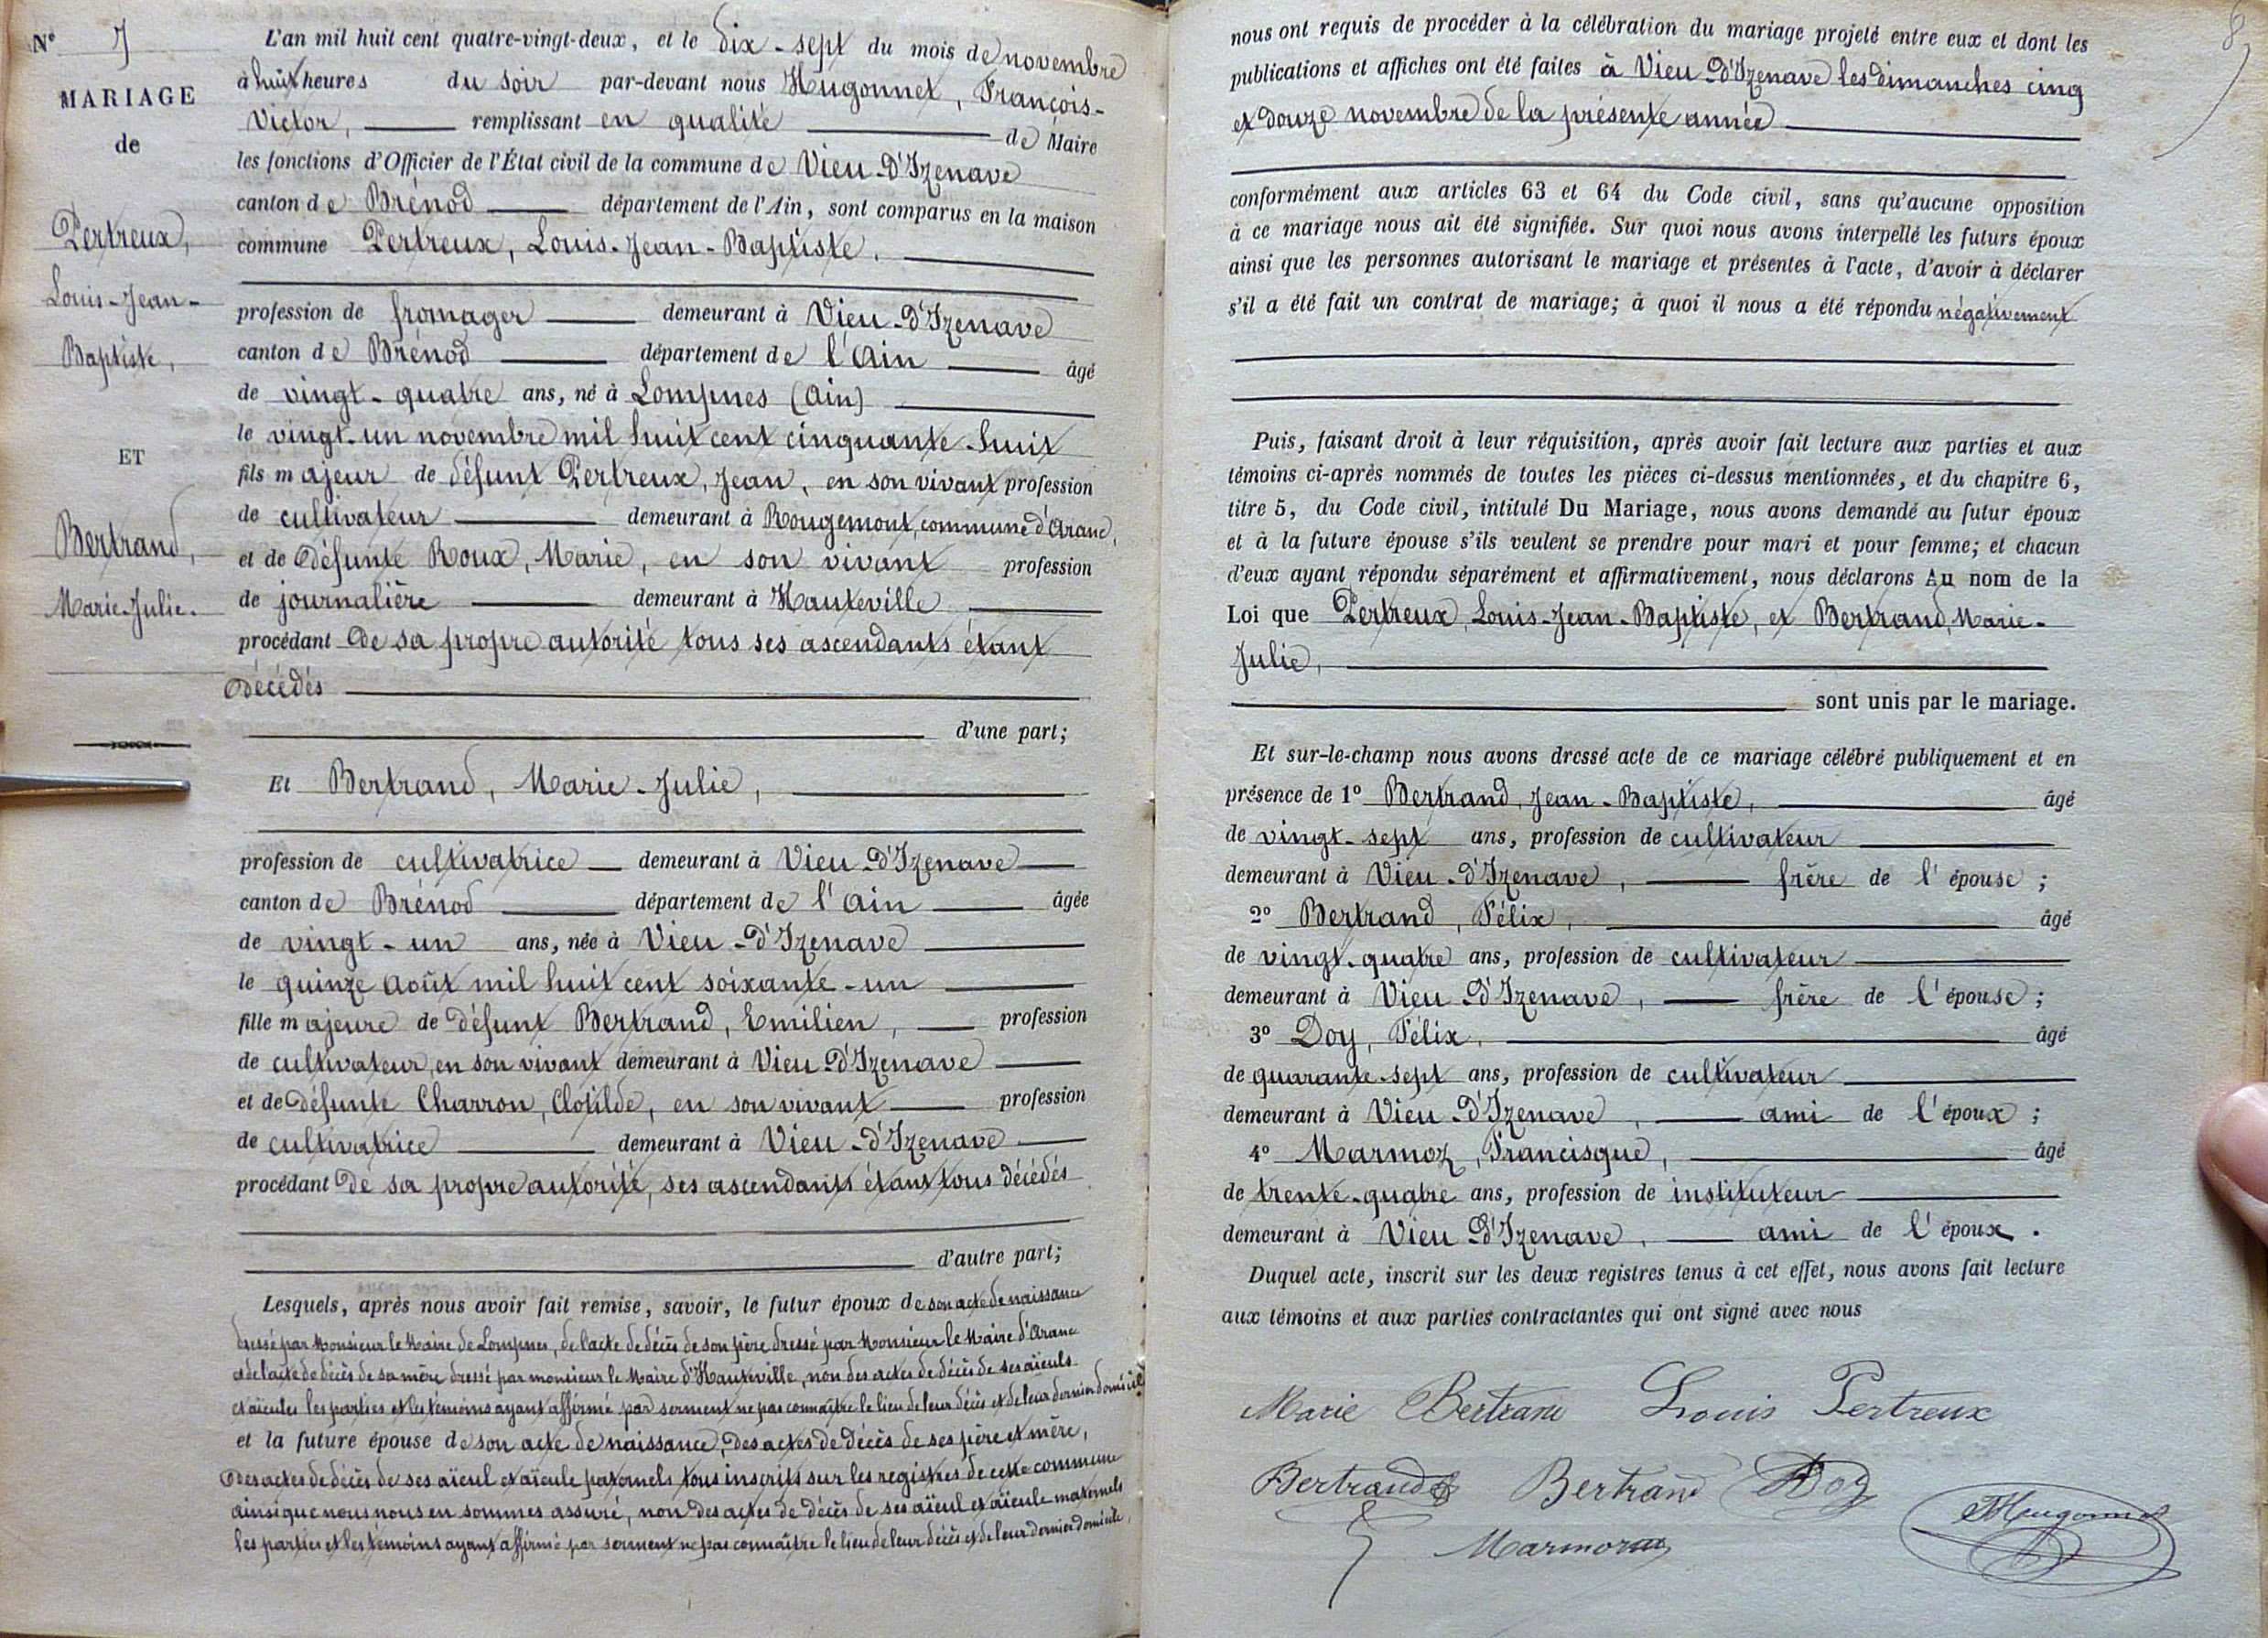 N° 7
MARIAGE
de
Pertreux,
Louis-Jean-
Baptiste,
ET
Bertrand,
Marie-Julie.
L'an mil huit cent quatre-vingt-deux, et le dix-sept du mois de novembre
à huit heures du soir par-devant nous Hugonnet, François-
Victor, remplissant en qualité de Maire
les fonctions d'Officier de l'État civil de la commune de Vieu-d'Izenave
canton de Brénod département de l'Ain, sont comparus en la maison
commune Pertreux, Louis-Jean-Baptiste,
profession de fromager demeurant à Vieu-d'Izenave
canton de Brénod département de l'Ain âgé
de vingt-quatre ans, né à Lompnes (Ain)
le vingt-un novembre mil huit cent cinquante-huit
fils majeur de défunt Pertreux, Jean, en son vivant profession
de cultivateur demeurant à Rougemont, commune d'Aranc,
et de défunte Roux, Marie, en son vivant profession
de journalière demeurant à Hauteville
procédant de sa propre autorité tous ses ascendants étant
décédés
d'une part;
Et Bertrand, Marie-Julie,
profession de cultivatrice demeurant à Vieu-d'Izenave
canton de Brénod département de l'Ain âgée
de vingt-un ans, née à Vieu-d'Izenave
le quinze août mil huit cent soixante-un
fille majeure de défunt Bertrand, Emilien, profession
de cultivateur, en son vivant demeurant à Vieu-d'Izenave
et de défunte Charron, Clotilde, en son vivant profession
de cultivatrice demeurant à Vieu-d'Izenave
procédant de sa propre autorité, ses ascendants étant tous décédés
d'autre part;
Lesquels, après nous avoir fait remise, savoir, le futur époux de son acte de naissance
dressé par Monsieur le Maire de Lompnes, de l'acte de décès de son père dressé par Monsieur le Maire d'Aranc
et de l'acte de décès de sa mère dressé par monsieur le Maire d'Hauteville, non des actes de décès de ses aïeuls
et aïeules les parties et les témoins ayant affirmé par serment ne pas connaître le lieu de leur décès et de leur dernier domicile
et la future épouse de son acte de naissance, des actes de décès de ses père et mère,
des actes de décès de ses aïeul et aïeule paternels tous inscrits sur les registres de cette commune
ainsi que nous nous en sommes assuré, non des actes de décès de ses aïeul et aïeule maternels
les parties et les témoins ayant affirmé par serment ne pas connaître le lieu de leur décès et de leur dernier domicile,
8
nous ont requis de procéder à la célébration du mariage projeté entre eux et dont les
publications et affiches ont été faites à Vieu-d'Izenave les dimanches cinq
et douze novembre de la présente année
conformément aux articles 63 et 64 du Code civil, sans qu'aucune opposition
à ce mariage nous ait été signifiée. Sur quoi nous avons interpellé les futurs époux
ainsi que les personnes autorisant le mariage et présentes à l'acte, d'avoir à déclarer
s'il a été fait un contrat de mariage; à quoi il nous a été répondu négativement
Puis, faisant droit à leur réquisition, après avoir fait lecture aux parties et aux
témoins ci-après nommés de toutes les pièces ci-dessus mentionnées, et du chapitre 6,
titre 5, du Code civil, intitulé Du Mariage, nous avons demandé au futur époux
et à la future épouse s'ils veulent se prendre pour mari et pour femme; et chacun
d'eux ayant répondu séparément et affirmativement, nous déclarons Au nom de la
Loi que Pertreux, Louis-Jean-Baptiste, et Bertrand, Marie-
Julie,
sont unis par le mariage.
Et sur-le-champ nous avons dressé acte de ce mariage célébré publiquement et en
présence de 1° Bertrand, Jean-Baptiste, âgé
de vingt-sept ans, profession de cultivateur
demeurant à Vieu-d'Izenave, frère de l'épouse;
2° Bertrand, Félix, âgé
de vingt-quatre ans, profession de cultivateur
demeurant à Vieu-d'Izenave, frère de l'épouse;
3° Doy, Félix, âgé
de quarante-sept ans, profession de cultivateur
demeurant à Vieu-d'Izenave, ami de l'époux;
4° Marmoz, Francisque, âgé
de trente-quatre ans, profession de instituteur
demeurant à Vieu-d'Izenave, ami de l'époux.
Duquel acte, inscrit sur les deux registres tenus à cet effet, nous avons fait lecture
aux témoins et aux parties contractantes qui ont signé avec nous
Marie Bertrand Louis Pertreux
Bertrand Bertrand Doy
Marmoz Hugonnet